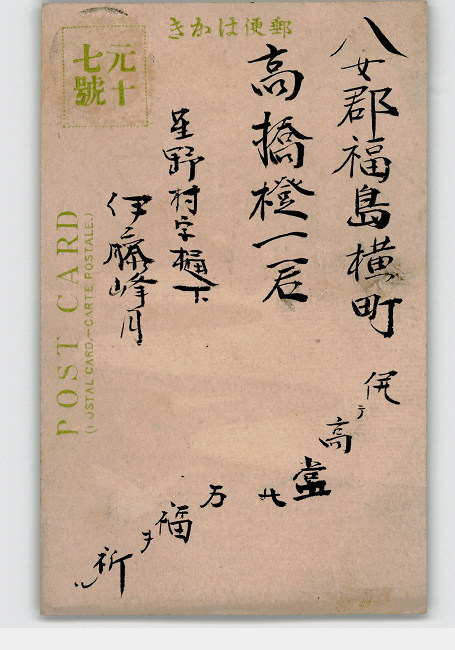 郵便はかき
元十
七號
八女郡福島横町
高橋橙一君
星野村字樋下
伊藤峰月
併テ
高堂
万
福ヲ
祈ル
POST CARD
(POSTAL CARD.—CARTE POSTALE.)